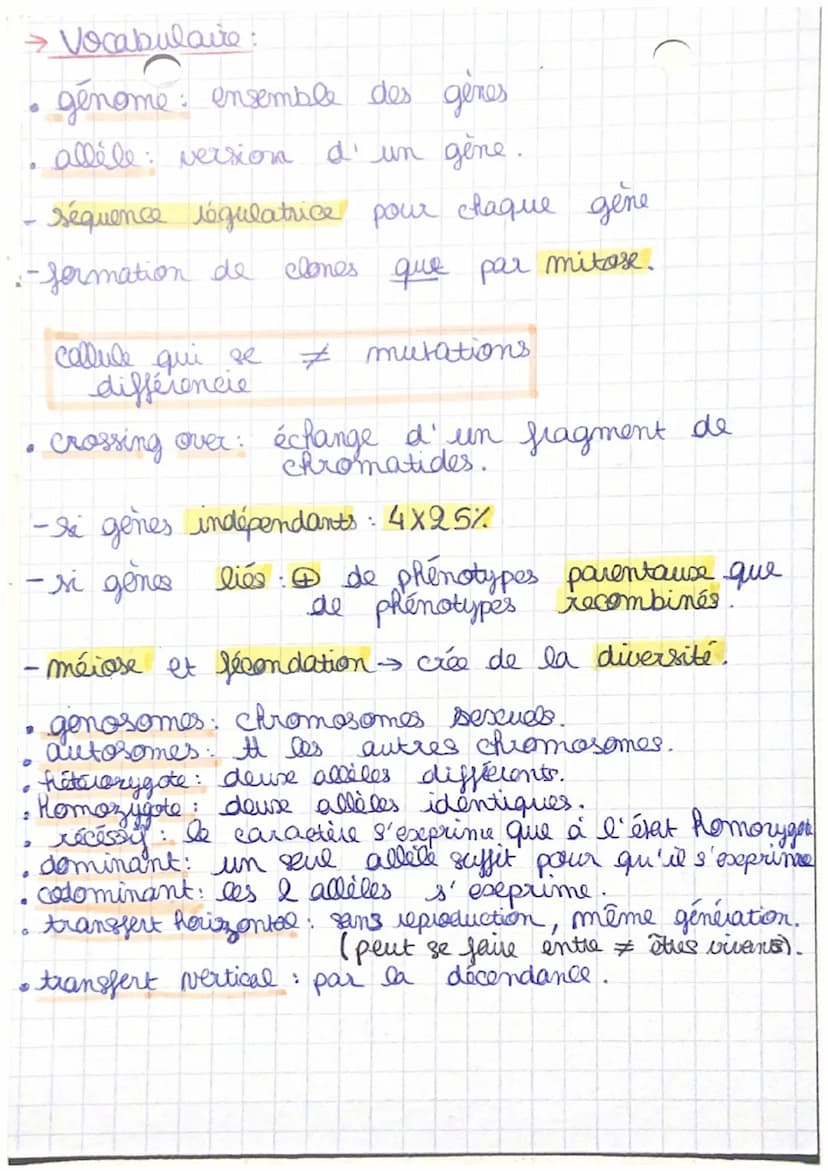 → Vocabulaire :
• génome : ensemble des gènes
• allèle : version d'un gène.
- séquence régulatrice pour chaque gène
- formation de clones que par mitose.
cellule qui se ≠ mutations
différencie
• crossing over : échange d'un fragment de
chromatides.
- si gènes indépendants : 4x25%
- si gènes liés : ⊕ de phénotypes parentaux que
de phénotypes recombinés.
- méiose et fécondation → crée de la diversité.
• gonosomes : chromosomes sexuels.
• autosomes : tt les autres chromosomes.
• hétérozygote : deux allèles différents.
• homozygote : deux allèles identiques.
• récéssif : le caractère s'exprime que à l'état homozygote
• dominant : un seul allèle suffit pour qu'il s'exprime
• codominant : les 2 allèles s'exprime.
• transfert horizontal : sans reproduction, même génération.
(peut se faire entre ≠ êtres vivants).
• transfert vertical : par la décendance.